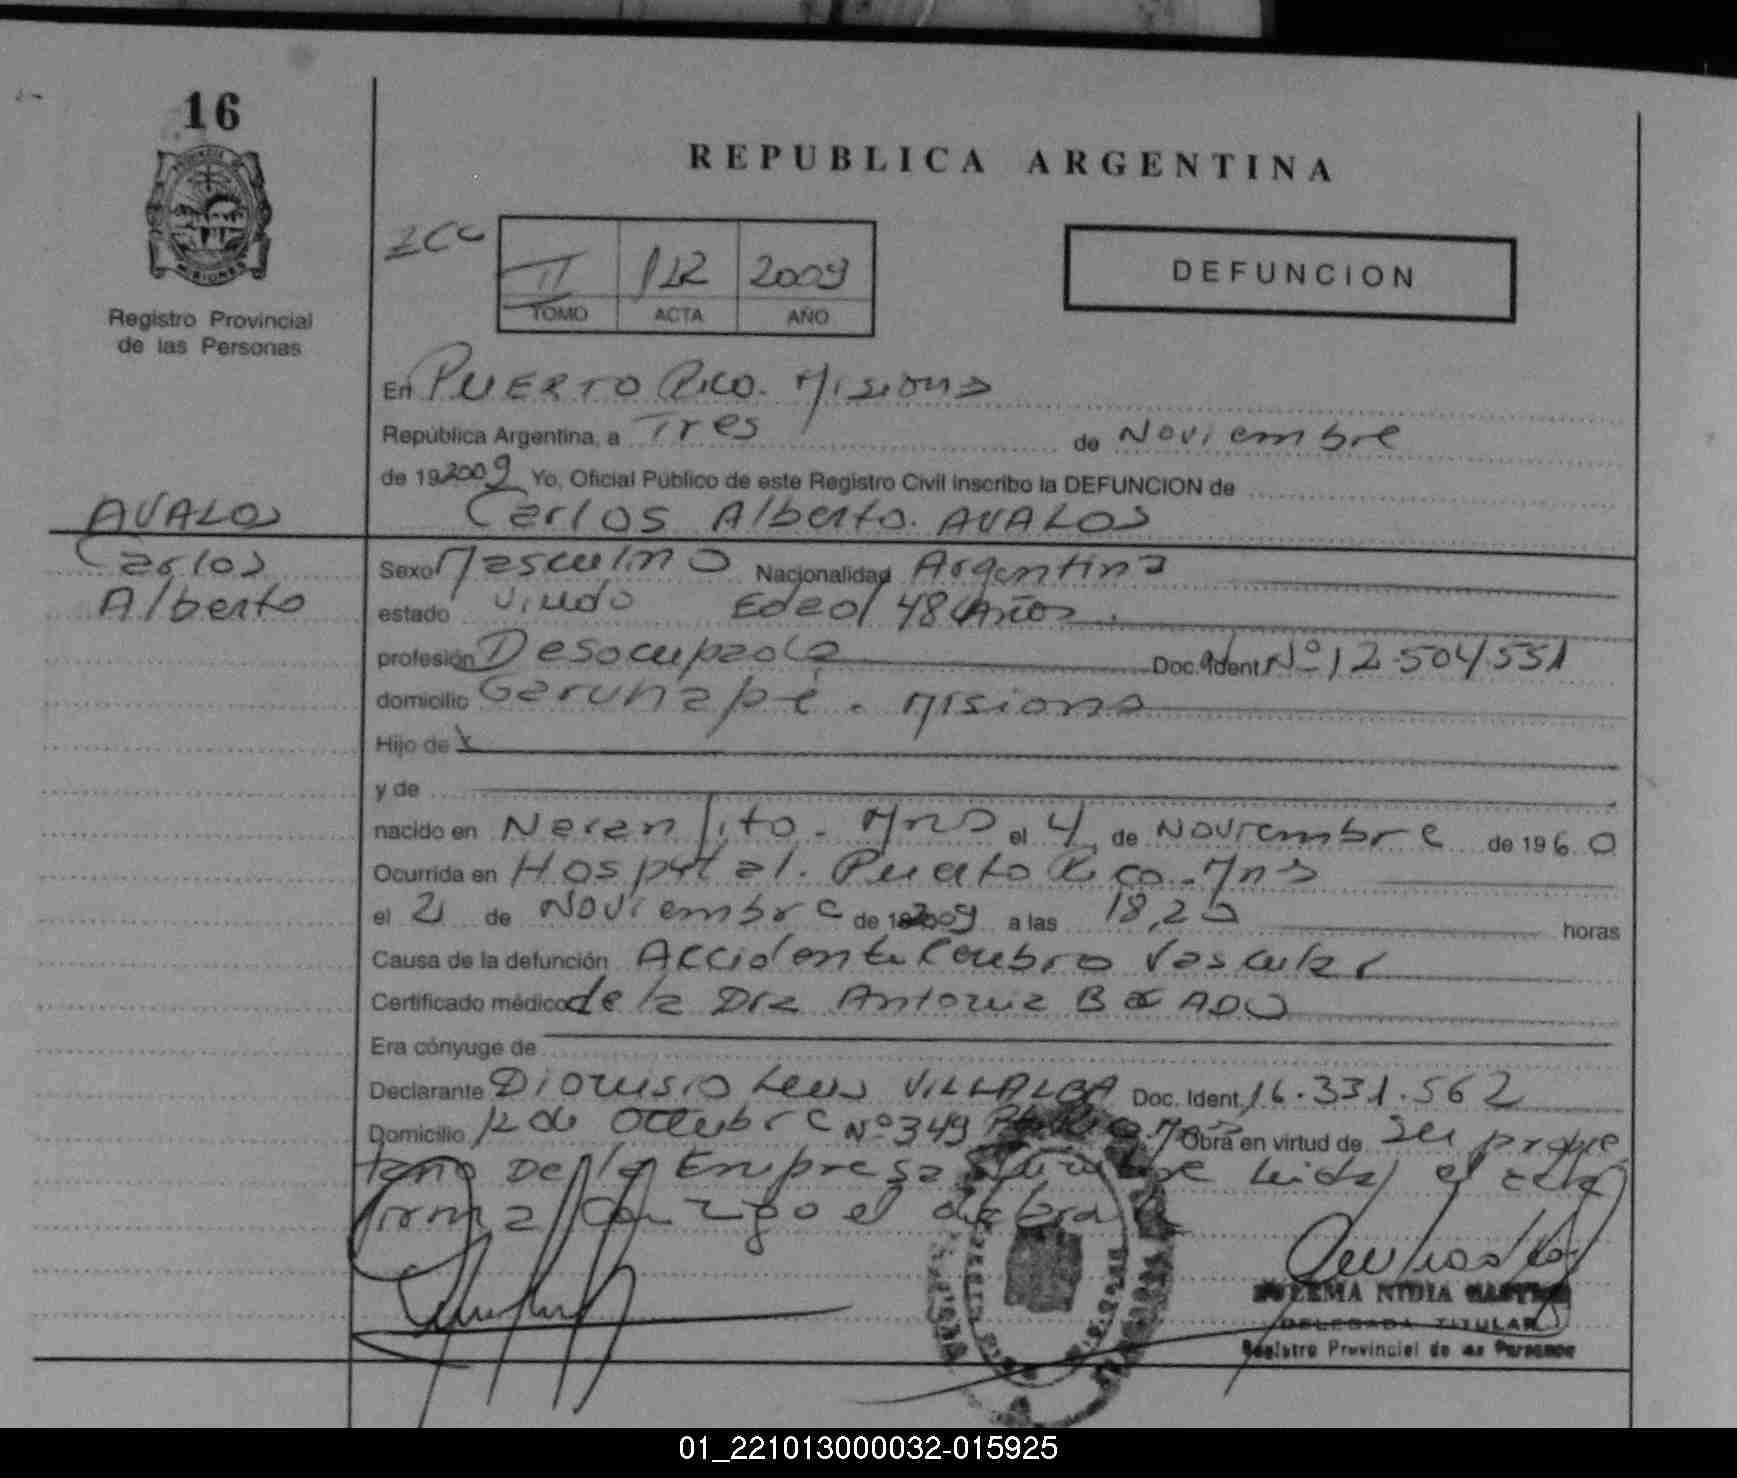 16
REPUBLICA ARGENTINA
MISIONES
Registro Provincial
de las Personas
II 112 2009
TOMO ACTA AÑO
DEFUNCION
En PUERTO Rico. Misiones
República Argentina, a Tres de Noviembre
de 19 2009 Yo, Oficial Público de este Registro Civil inscribo la DEFUNCION de
AVALOS
Carlos
Alberto
Carlos Alberto. AVALOS
Sexo Masculino Nacionalidad Argentina
estado Viudo Edad 48 Años.
profesión Desocupado Doc. Ident Nº 12.504.551
domicilio Garuhapé. Misiones
Hijo de
y de
nacido en Naranjito. Mnes el 4 de Noviembre de 1960
Ocurrida en Hospital. Puerto Rico. Mns
el 2 de Noviembre de 2009 a las 18,20 horas
Causa de la defunción Accidente Cerebro Vascular
Certificado médico de la Dra Antonia
Era cónyuge de
Declarante Dionisio Luis VILLALBA Doc. Ident. 16.331.562
Domicilio 12 de Octubre Nº 349 Obra en virtud de Ser propie
tario De la Empresa Leida el acta
firma Conmigo el
ZULEMA NIDIA
DELEGADA TITULAR
Registro Provincial de las Personas
01_221013000032-015925